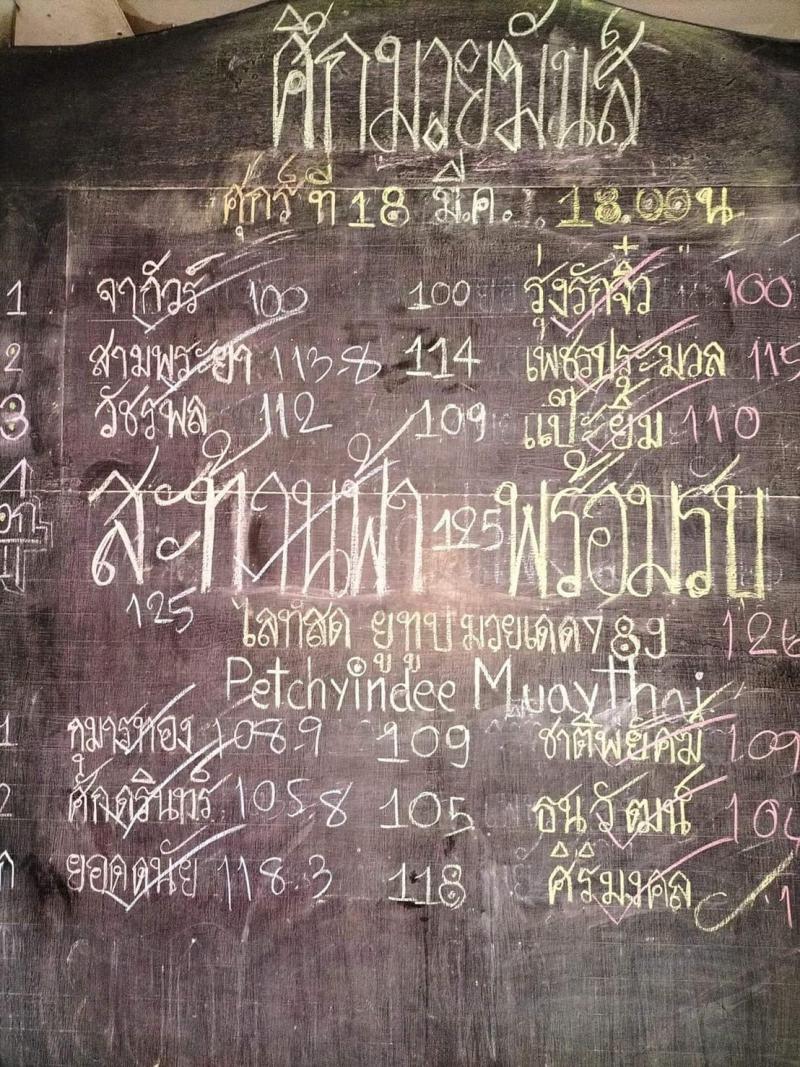 ศึกมวยมันส์
ศุกร์ ที่ 18 มี.ค. 18.00 น
1 จากัวร์ 100 100 รุ่งรักจิ๋ว 100
2 สามพระยา 113.8 114 เพชรประมวล 115
3 วัชรพล 112 109 แป๊ะยิ้ม 110
สะท้านฟ้า 125 พร้อมรับ
125 ไลท์สด ยูทูป มวยเด็ด789 126
Petchyindee Muay Thai
1 กุมารทอง 108.9 109 ชาติพยัคฆ์ 109
2 ศักดรินทร์ 105.8 105 ธนวัฒน์ 104
ก ยอดดนัย 118.3 118 ศิริมงคล